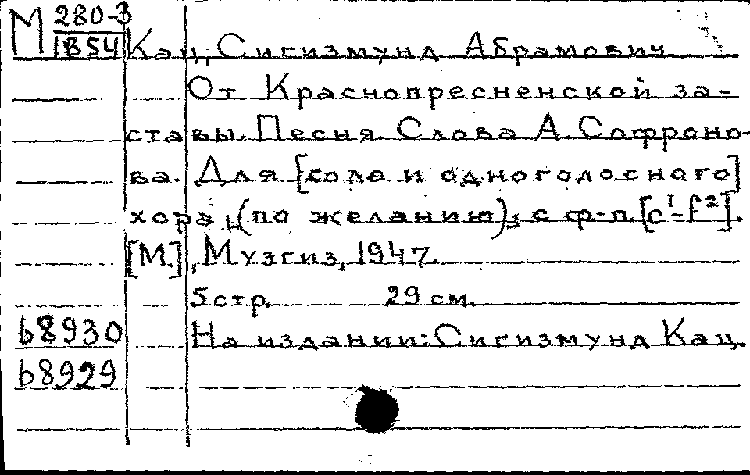 М 280-3
1854
Кац, Сигизмунд Абрамович
От Краснопресненской за-
ставы. Песня. Слова А. Софроно-
ва. Для [соло и одноголосного]
хора (по желанию), с ф-п. [c¹-f²].
[М.], Музгиз, 1947.
5 стр. 29 см.
На издании: Сигизмунд Кац.
68930
68929